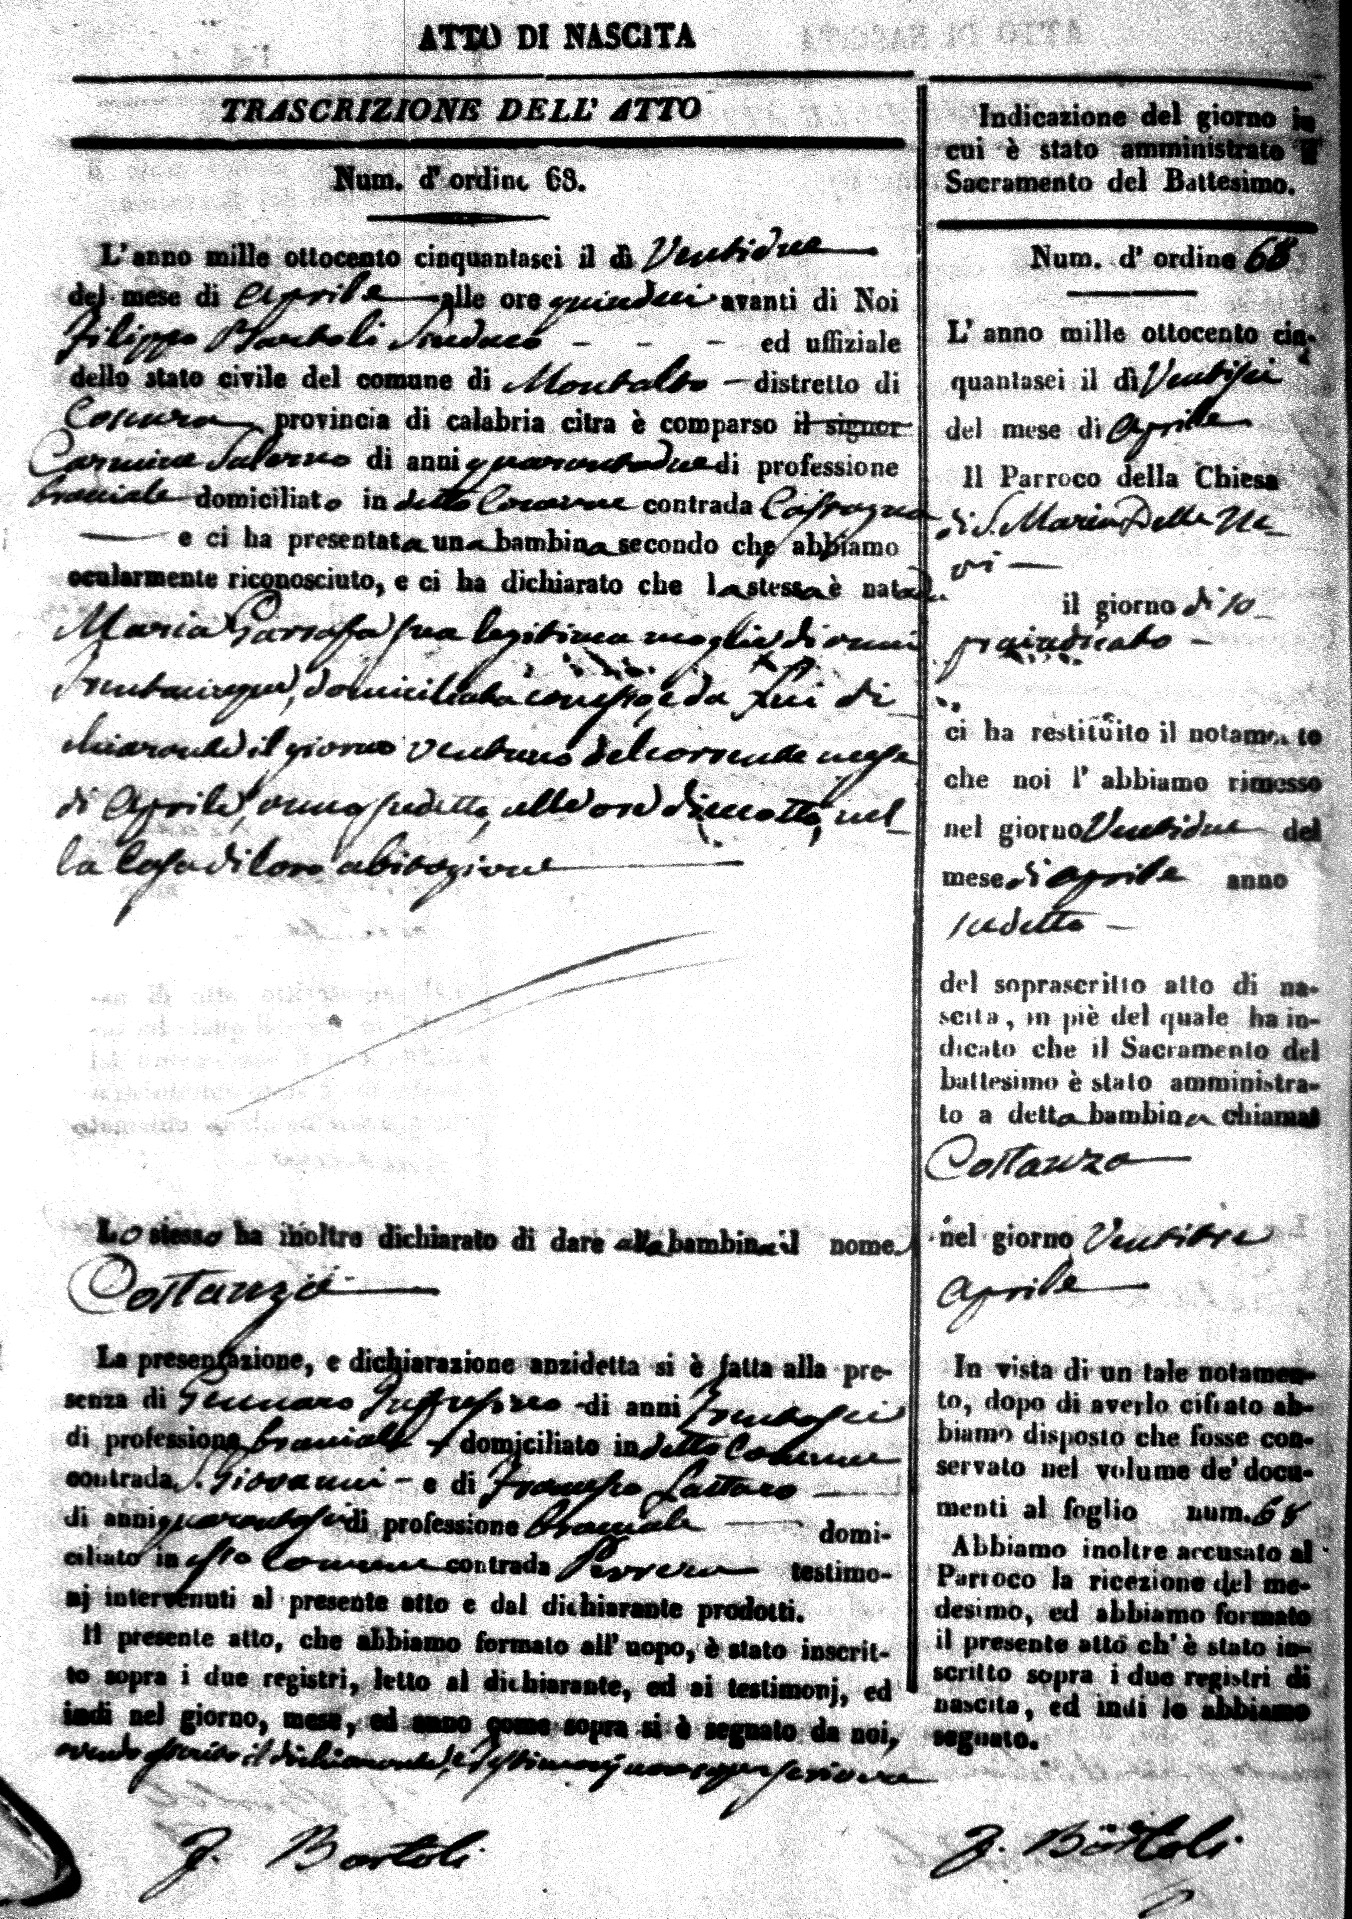 ATTO DI NASCITA
TRASCRIZIONE DELL' ATTO
Num. d'ordine 68.
L'anno mille ottocento cinquantasei il dì Ventidue
del mese di Aprile alle ore quindici avanti di Noi
Filippo Bartoli Sindaco - - - ed uffiziale
dello stato civile del comune di Montalto - distretto di
Cosenza provincia di calabria citra è comparso il signor
Carmine Salerno di anni quarantadue di professione
braciale domiciliato in detto Comune contrada
e ci ha presentata una bambina secondo che abbiamo
ocularmente riconosciuto, e ci ha dichiarato che la stessa è nata da
Maria Garrafa sua legitima moglie di anni
trentacinque, domiciliata con esso, e da lui di
chiarante il giorno ventuno del corrente mese
di Aprile, anno sudetto, alle ore diecotto, nel
la Casa di loro abitazione
Lo stesso ha inoltre dichiarato di dare alla bambina il nome
Costanza
La presentazione, e dichiarazione anzidetta si è fatta alla pre-
senza di Gennaro di anni trentasei
di professione braciale - domiciliato in detto Comune
contrada S. Giovanni - e di Lattaro
di anni quarantasei di professione braciale domi-
ciliato in esso Comune contrada testimo-
nj intervenuti al presente atto e dal dichiarante prodotti.
Il presente atto, che abbiamo formato all' uopo, è stato inscrit-
to sopra i due registri, letto al dichiarante, ed ai testimonj, ed
indi nel giorno, mese, ed anno come sopra si è segnato da noi,
avendo il dichiarante, e Testimonj non saper scrivere
F. Bartoli
Indicazione del giorno in
cui è stato amministrato il
Sacramento del Battesimo.
Num. d' ordine 68
L' anno mille ottocento cin-
quantasei il dì Ventisei
del mese di Aprile
Il Parroco della Chiesa
di S. Maria Della Ne
vi
il giorno di so
praindicato -
ci ha restituito il notamento
che noi l' abbiamo rimesso
nel giorno Ventidue del
mese di Aprile anno
sudetto -
del soprascritto atto di na-
scita, in piè del quale ha in-
dicato che il Sacramento del
battesimo è stato amministra-
to a detta bambina chiamat
Costanza
nel giorno Ventitre
Aprile
In vista di un tale notamen-
to, dopo di averlo cifrato ab-
biamo disposto che fosse con-
servato nel volume de' docu-
menti al foglio num. 68
Abbiamo inoltre accusato al
Parroco la ricezione del me-
desimo, ed abbiamo formato
il presente atto ch' è stato in-
scritto sopra i due registri di
nascita, ed indi lo abbiamo
segnato.
F. Bartoli